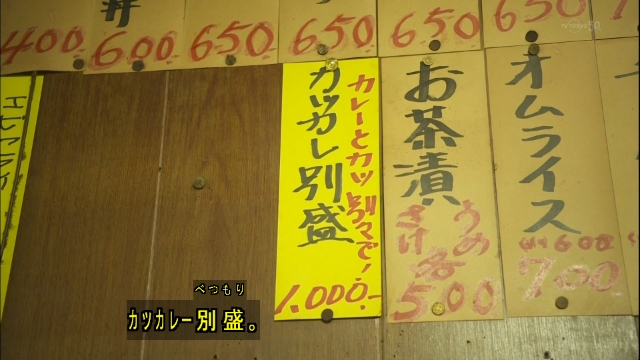 400
丼
600
650
650
650
650
カレーとカツ別々で!
カツカレ別盛
1.000.-
お茶漬
うめ
さけ
各
500
オムライス
600
700
べつもり
カツカレー別盛。